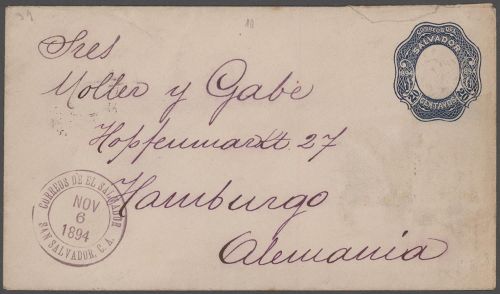 CORREOS DEL
SALVADOR
1894
CENTAVOS
Sres
Molter y Gabe
Hopfenmarkt 27
Hamburgo
Alemania
CORREOS DE EL SALVADOR
NOV
6
1894
SAN SALVADOR, C. A.